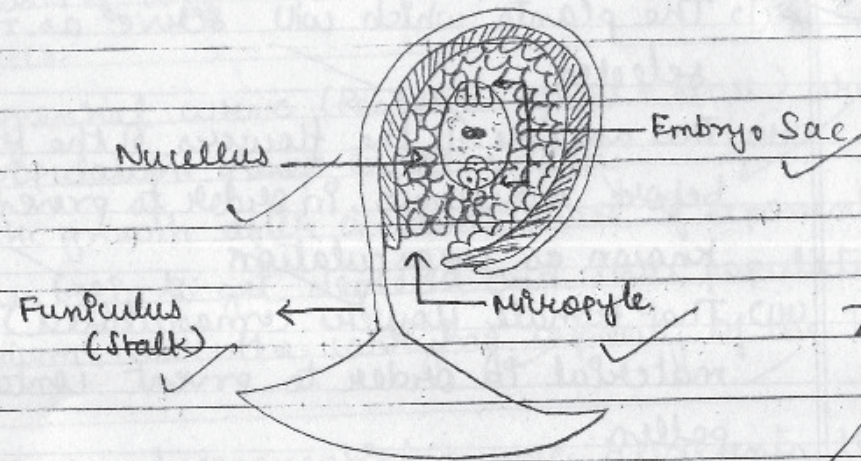 Embryo Sac
Nucellus
Micropyle
Funiculus
(Stalk)